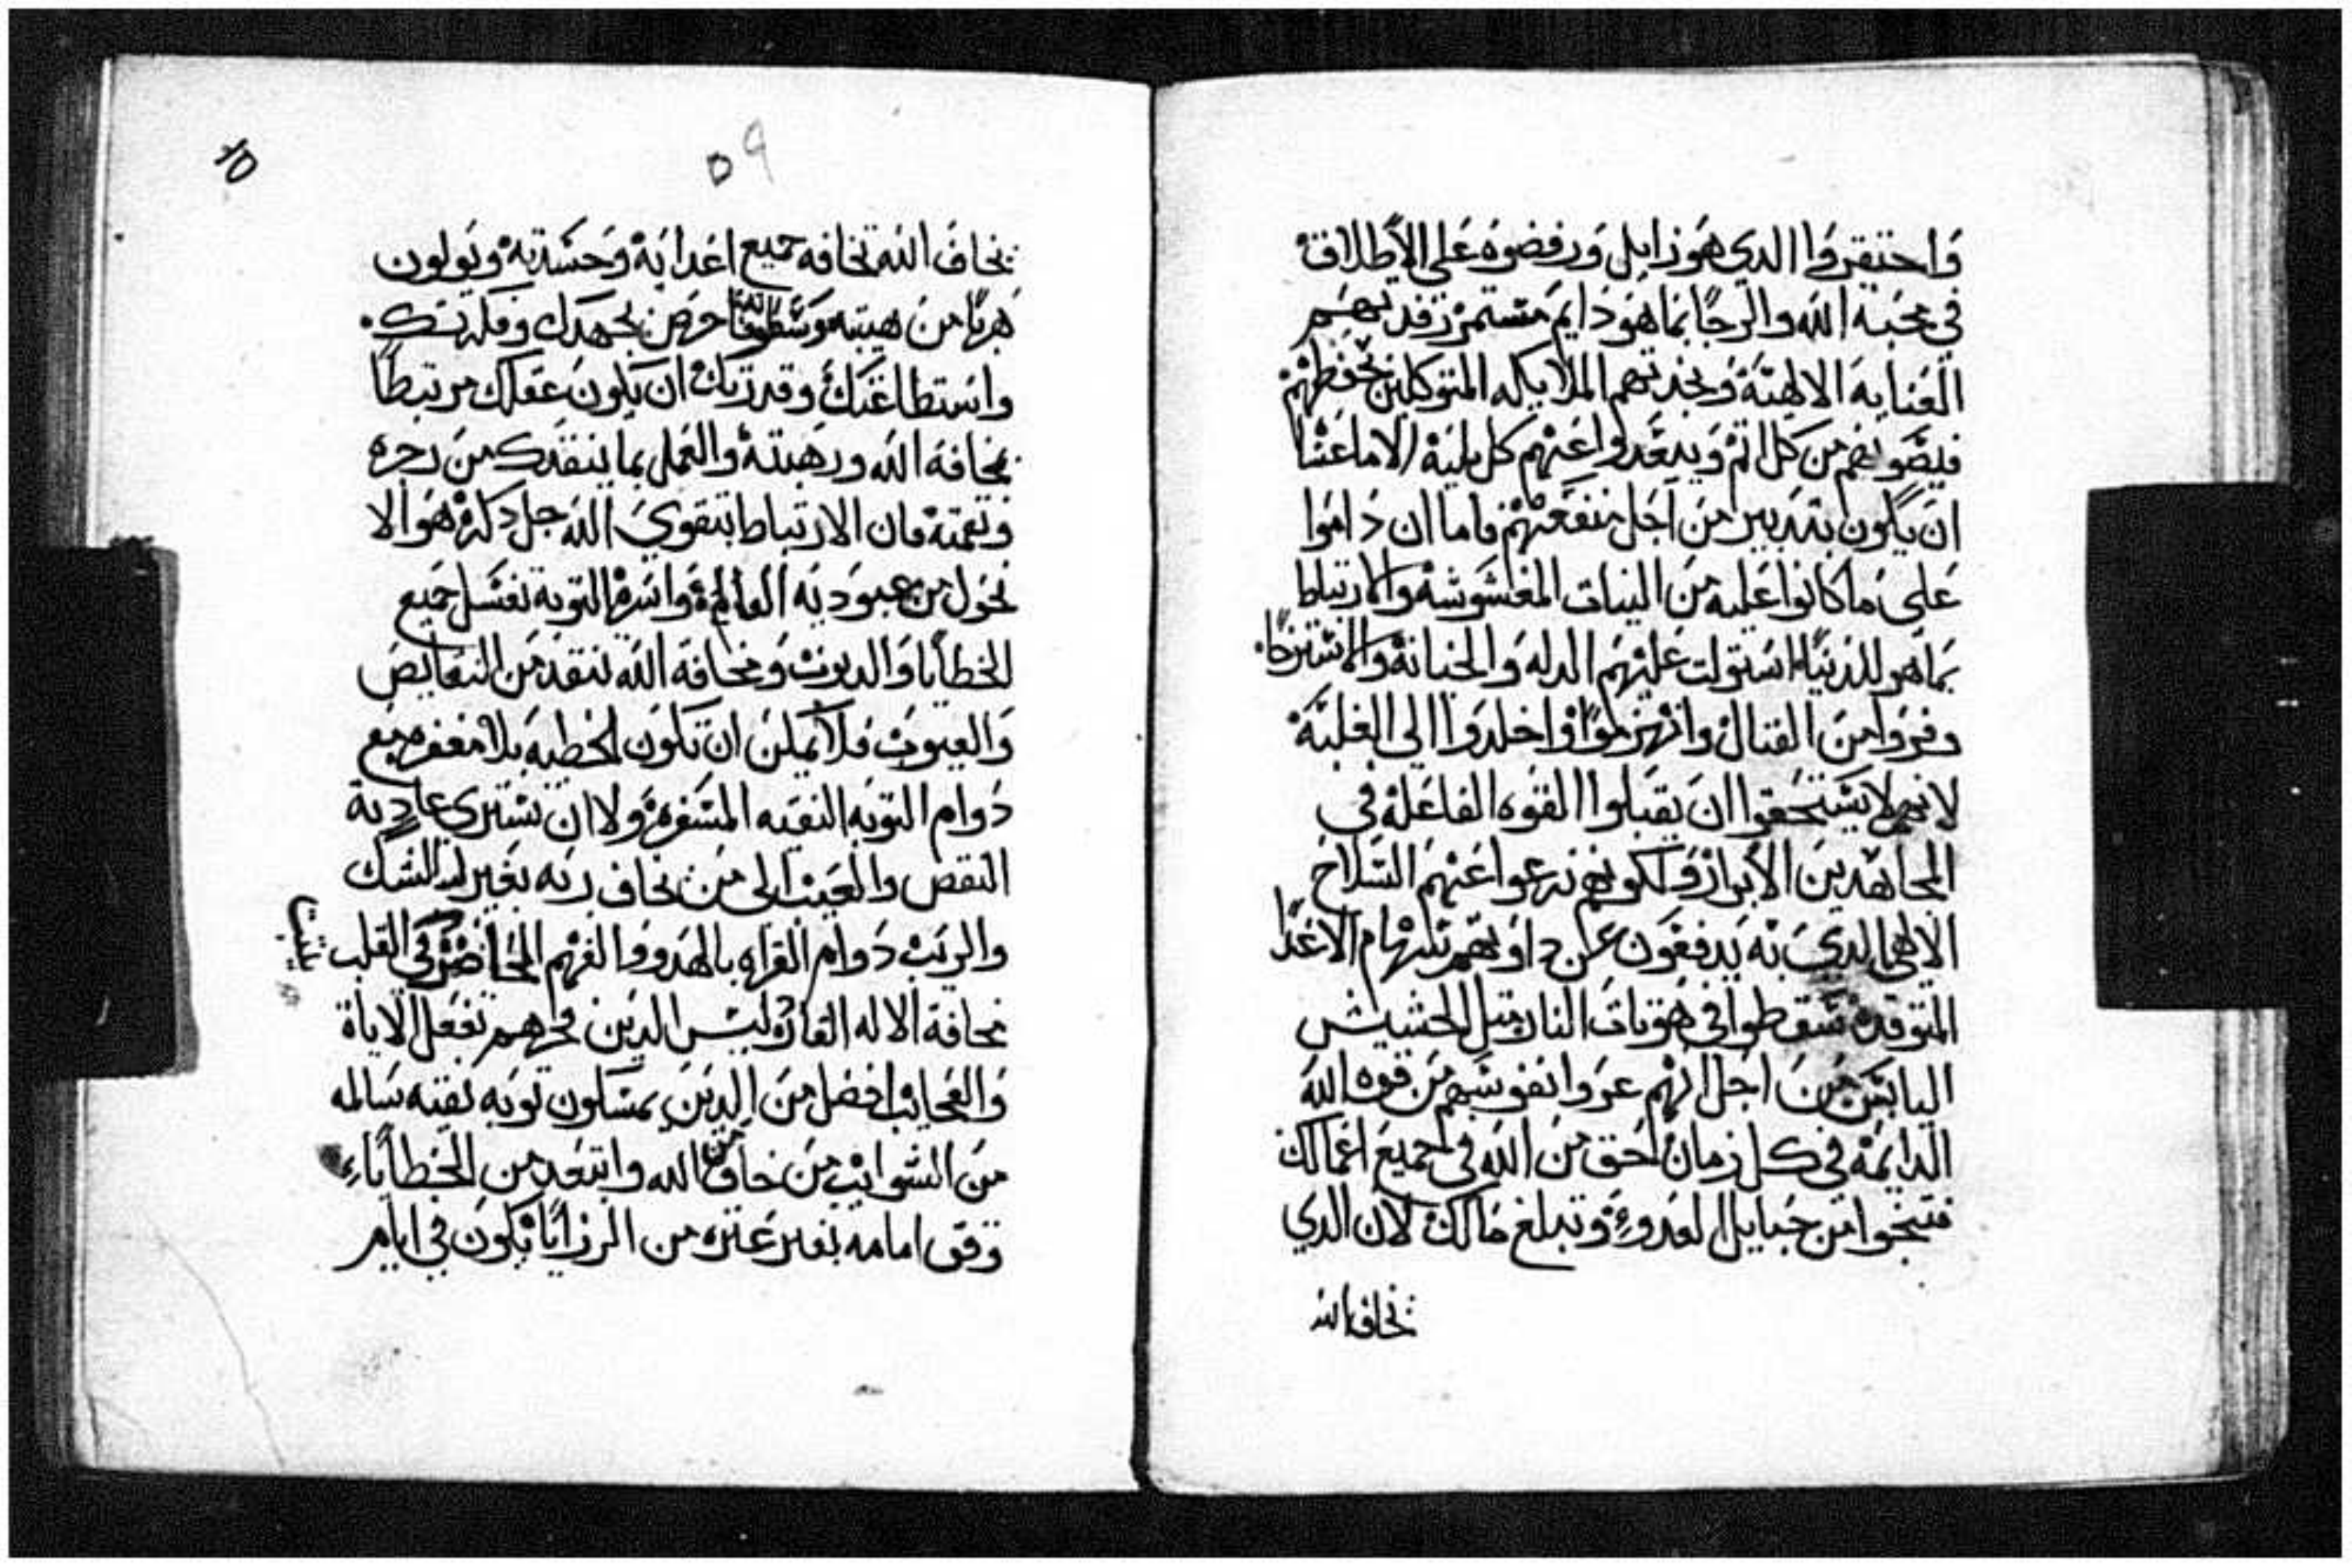 واحتقروا الدي هو زايل ورفضوه على الاطلاق
في محبة الله والرجا بما هو دايم مستمر ترفدتهم
العنايه الالهية وبخدتهم الملايكه المتوكلين بحفظهم
فيصونهم من كل اتم ويبعدوا عنهم كل بلية الا ما عسا
ان يكون بتدبير من اجل منفعتهم فاما ان داموا
على ما كانوا عليه من النيات المغشوشه والارتباط
بما هو للدنيا استولت عليهم الدله والخيانة والاسترخا.
وفروا من القتال وانهزموا واخلدوا الى الغلبة
لانهم لا يستحقوا ان يقبلوا القوه الفاعله في
المجاهدين الابرار ولكونهم نزعوا عنهم السلاح
الالهي الدي به يدفعون عن دواتهم سهام الاعدا
المتوقده سقطوا في هوتات النار متل الحشيش
اليابس من اجل انهم عروا نفوسهم من قوه الله
الدايمه في كل زمان احق من الله في جميع اعمالك
فتنجوا من حبايل العدو وتبلغ مالك لان الدي
يخاف الله
٥٩
يخاف الله تخافه جميع اعدايه وحسدته ويولون
هربا من هيبته وسطوته احرص بجهدك وفكرتك.
واستطاعتك وقدرتك ان يكون عقلك مرتبطا
بمخافة الله ورهبته والعمل بما ينقدك من زجره
ونقمته فان الارتباط بتقوي الله جل دكره هو الا
نحول من عبودية العالم واسره التوبة تغسل جميع
الخطايا والديون ومخافة الله تنقد من النقايص
والعيوب فلا يمكن ان تكون الخطيه بلا مغفره مع
دوام التوبه النقيه المسفره ولا ان تسترى عادية
النقص والعيب الى من يخاف ربه بغير الشك
والريب دوام القراه بالهدو والفهم الحاضر في القلب تثبت
مخافة الاله القاره ليس الدين فخرهم بفعل الاياة
والعجايب افضل من الدين يمسكون توبه نقيه سالمه
من الشوايب من خاف من الله وابتعد من الخطايا
وقف امامه بغير عتره من الرزايا نكون في ايام